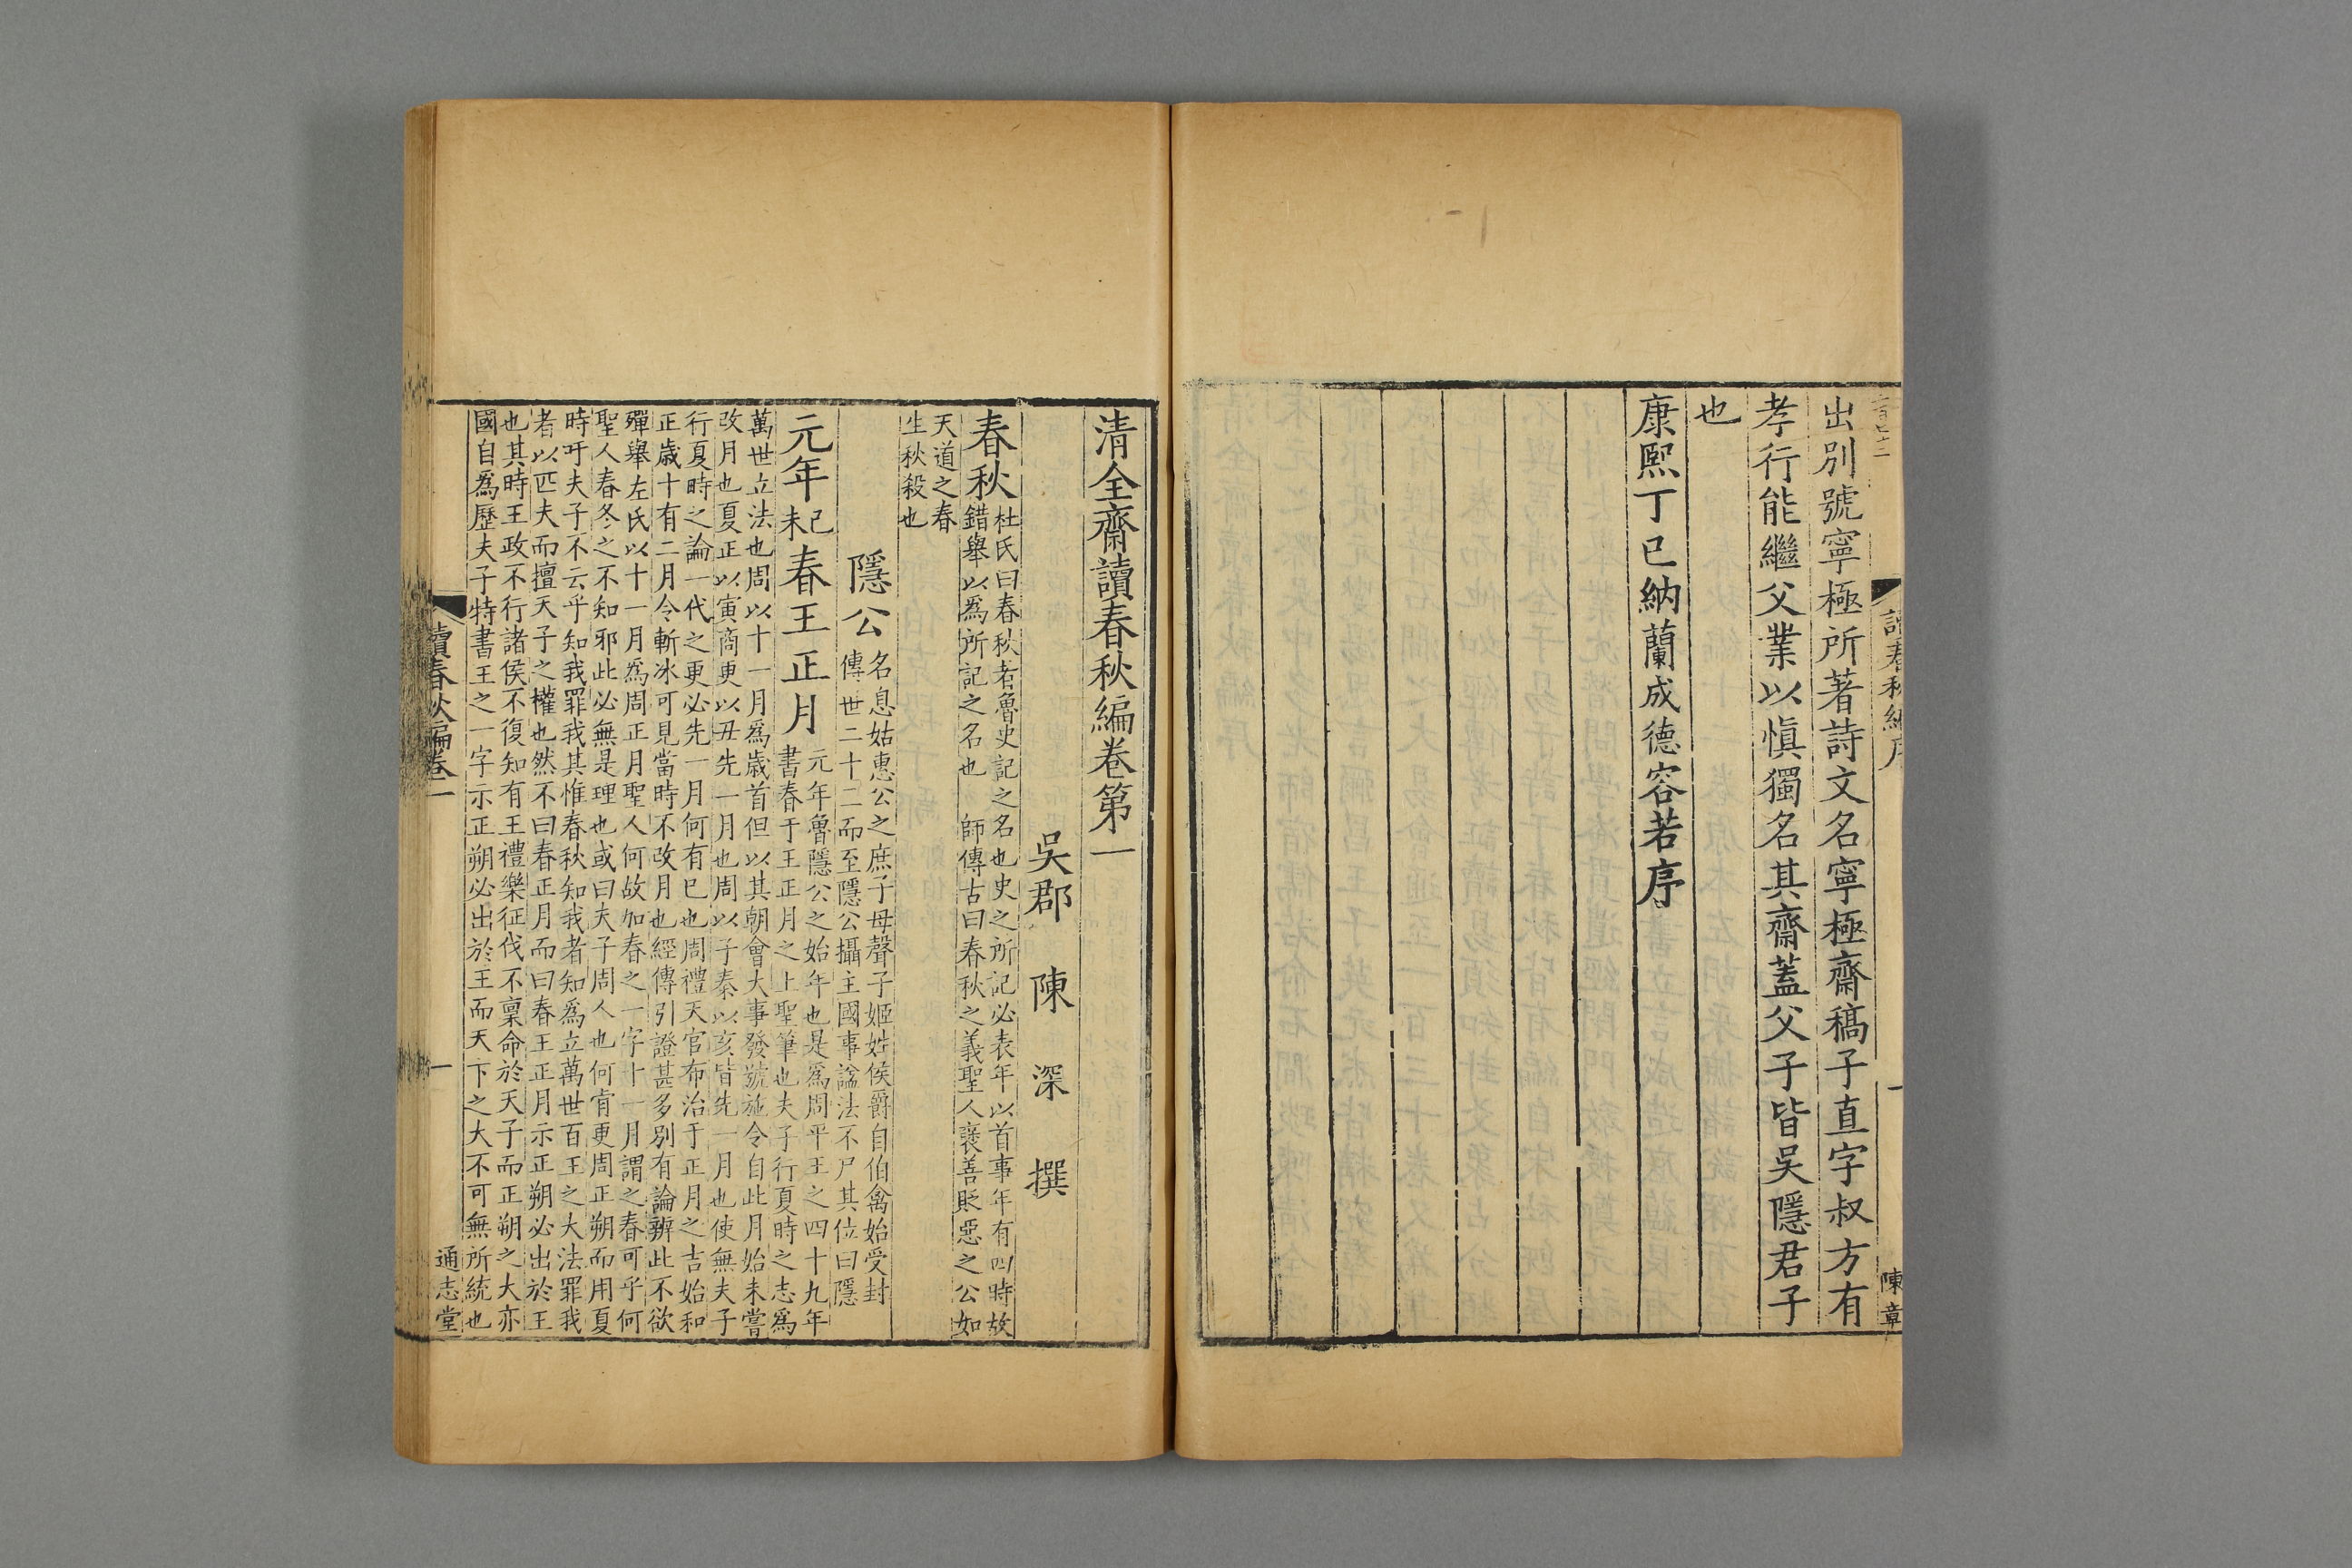 讀春秋編序
一
陳章
出別號寧極所著詩文名寧極齋稿子直字叔方有
孝行能繼父業以慎獨名其齋蓋父子皆吳隱君子
也
康熙丁巳納蘭成德容若序
清全齋讀春秋編卷第一
吳郡 陳 深 撰
春秋
杜氏曰春秋者魯史記之名也史之所記必表年以首事年有四時故
錯舉以為所記之名也 師傳古曰春秋之義聖人褒善貶惡之公如
天道之春
生秋殺也
隱公
名息姑惠公之庶子母聲子姬姓侯爵自伯禽始受封
傳世二十二而至隱公攝主國事諡法不尸其位曰隱
元年
己
未
春王正月
元年魯隱公之始年也是為周平王之四十九年
書春于王正月之上聖筆也夫子行夏時之志為
萬世立法也周以十一月為歲首但以其朝會大事發號施令自此月始未嘗
改月也夏正以寅商更以丑先一月也周以子秦以亥皆先一月也使無夫子
行夏時之論一代之更必先一月何有已也周禮天官布治于正月之吉始和
正歲十有二月令斬冰可見當時不改月也經傳引證甚多別有論辨此不欲
殫舉左氏以十一月為周正月聖人何故加春之一字十一月謂之春可乎何
聖人春冬之不知邪此必無是理也或曰夫子周人也何肯更周正朔而用夏
時吁夫子不云乎知我罪我其惟春秋知我者知為立萬世百王之大法罪我
者以匹夫而擅天子之權也然不曰春正月而曰春王正月示正朔必出於王
也其時王政不行諸侯不復知有王禮樂征伐不稟命於天子而正朔之大亦
國自為歷夫子特書王之一字示正朔必出於王而天下之大不可無所統也
讀春秋編卷一
一
通志堂